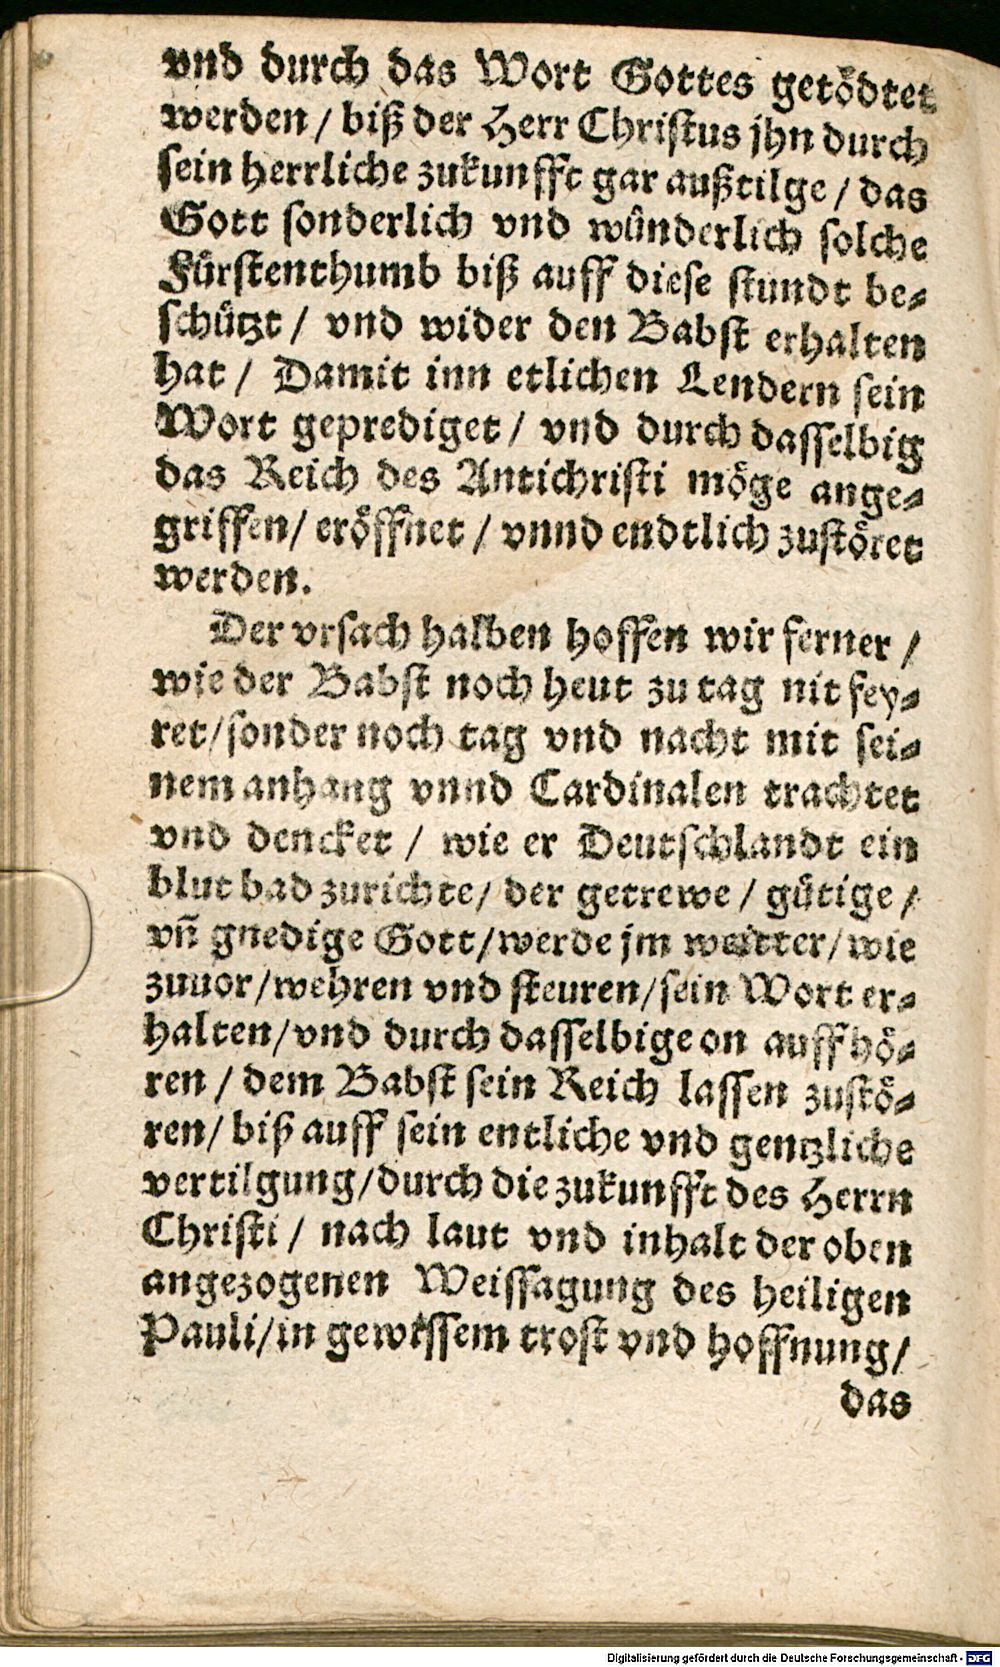 vnd durch das Wort Gottes getödtet
werden / biß der Herr Christus jhn durch
sein herrliche zukunfft gar außtilge / das
Gott sonderlich vnd wünderlich solche
Fürstenthumb biß auff diese stundt be-
schützt / vnd wider den Babst erhalten
hat / Damit inn etlichen Lendern sein
Wort geprediget / vnd durch dasselbig
das Reich des Antichristi möge ange-
griffen / eröffnet / vnnd endtlich zustöret
werden.
Der vrsach halben hoffen wir ferner /
wie der Babst noch heut zu tag nit fey-
ret / sonder noch tag vnd nacht mit sei-
nem anhang vnnd Cardinalen trachtet
vnd dencket / wie er Deutschlandt ein
blut bad zurichte / der getrewe / gütige /
vñ gnedige Gott / werde jm weitter / wie
zuuor / wehren vnd steuren / sein Wort er-
halten / vnd durch dasselbige on auffhö-
ren / dem Babst sein Reich lassen zustö-
ren / biß auff sein entliche vnd gentzliche
vertilgung / durch die zukunfft des Herrn
Christi / nach laut vnd inhalt der oben
angezogenen Weissagung des heiligen
Pauli / in gewissem trost vnd hoffnung /
das
Digitalisierung gefördert durch die Deutsche Forschungsgemeinschaft - DFG